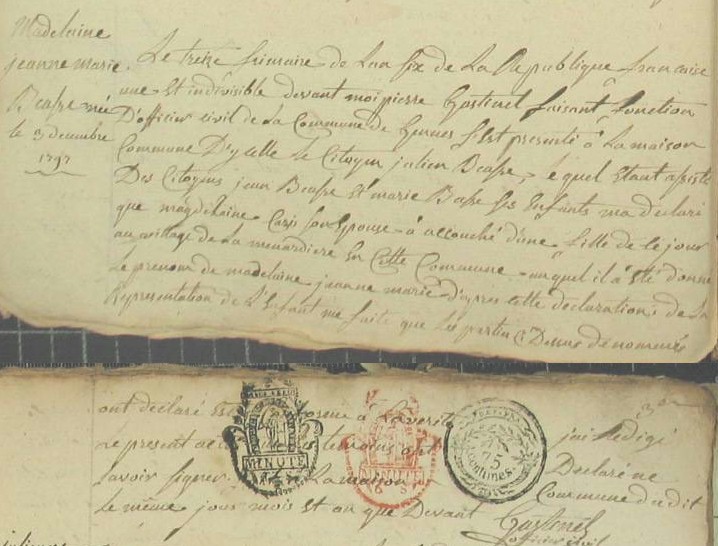 Madelaine
jeanne marie
Beasse née
le 3 decembre
1797
Le treize frimaire de Lan six de La Republique francaise
une et indivisible devant moi pierre Gastinel faisant fonction
D'officier civil de La Commune de Gennes s'Est presenté à La maison
Commune D'ycelle Le Citoyen julien Beasse, lequel Etant assisté
Des Citoyens jean Beasse et marie Basse ses Enfants ma declaré
que magdelaine son Epouse à accouché d'une fille de ce jour
au village de La menardiere En Cette Commune auquel il a Eté donné
Le prenom de madelaine jeanne marie d'apres cette declaration de La
Representation de L'Enfant me faite que Les parties Ci Dessus denommés
ont declaré La verité j'ai Redigé
Le present temoins ont Declaré ne
savoir signer La maison Commune dudit
Le même jour mois Et an que Devant
MINUTE
75
centimes
Gastinel
officier civil